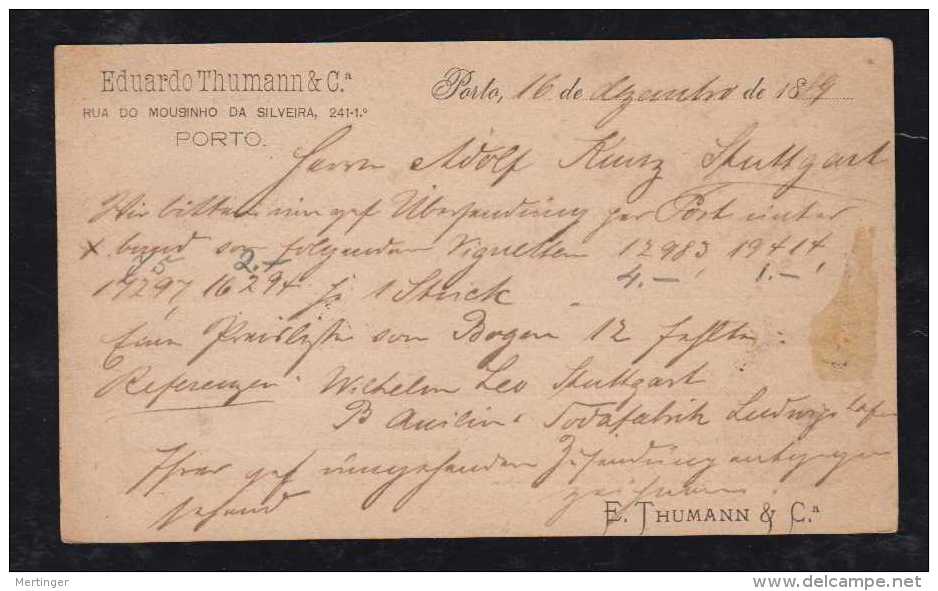 Eduardo Thumann & C.ª
RUA DO MOUSINHO DA SILVEIRA, 241-1.º
PORTO.
Porto, 16 de dezembro de 1889
Herrn Adolf Kunz Stuttgart
Wir bitten um gef Übersendung per Post unter
x band von folgenden Vignetten 12983, 19414,
2.-
4.- 1.-
17297, 16294 je 1 Stück
Eine Preisliste von Bogen 12 fehlte.
Referenzen: Wilhelm Leo Stuttgart
B Anilin & Sodafabrik Ludwigshafen
Ihrer gef umgehenden Zusendung entgegen
sehend zeichnen
E. THUMANN & C.ª
Mertinger
delcampe.net